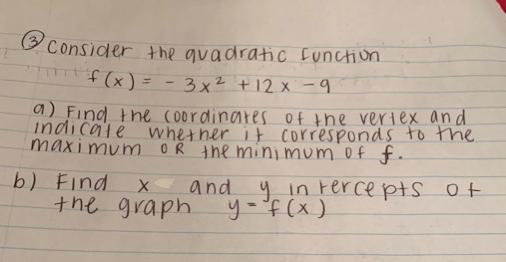 ③ Consider the quadratic function
f(x) = - 3x² + 12x - 9
a) Find the coordinates of the vertex and
indicate whether it corresponds to the
maximum OR the minimum of f.
b) Find x and y intercepts of
the graph y = f(x)